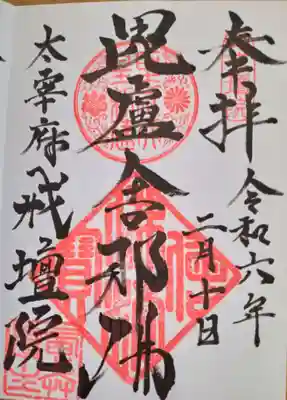 奉拝
令和六年
二月十日
毘盧舎那佛
太宰府
戒壇院